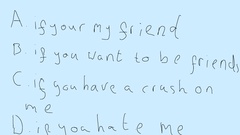 A if your my friend
B if you want to be friends
C. if you have a crush on
me
D. if you hate me